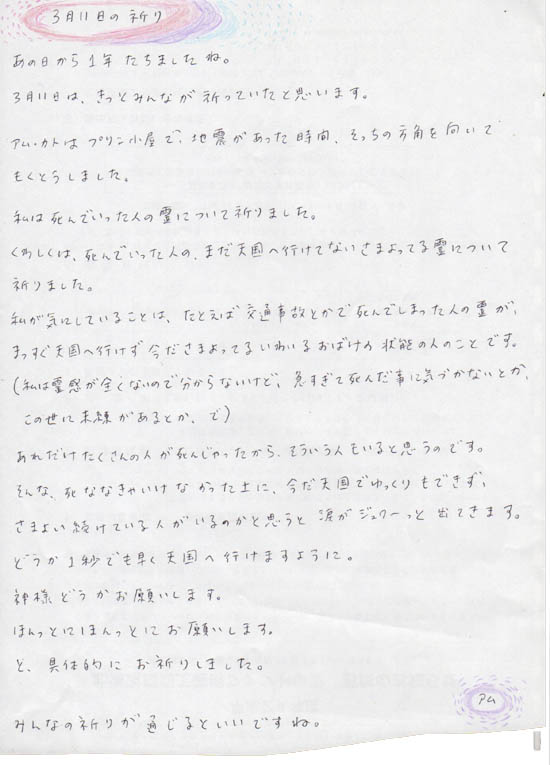 3月11日の祈り
あの日から1年たちましたね。
3月11日は、きっとみんなが祈っていたと思います。
アム・カトはプリン小屋で、地震があった時間、そっちの方角を向いて
もくとうしました。
私は死んでいった人の霊について祈りました。
くわしくは、死んでいった人の、まだ天国へ行けてないさまよってる霊について
祈りました。
私が気にしていることは、たとえば交通事故とかで死んでしまった人の霊が、
まっすぐ天国へ行けず今ださまよってるいわいるおばけの状態の人のことです。
(私は霊感が全くないので分からないけど、急すぎて死んだ事に気づかないとか、
この世に未練があるとか、で)
あれだけたくさんの人が死んじゃったから、そういう人もいると思うのです。
そんな、死ななきゃいけなかった上に、今だ天国でゆっくりもできず、
さまよい続けている人がいるのかと思うと涙がジュワーっと出てきます。
どうか1秒でも早く天国へ行けますように。
神様どうかお願いします。
ほんっとにほんっとにお願いします。
と、具体的にお祈りしました。
みんなの祈りが通じるといいですね。
アム